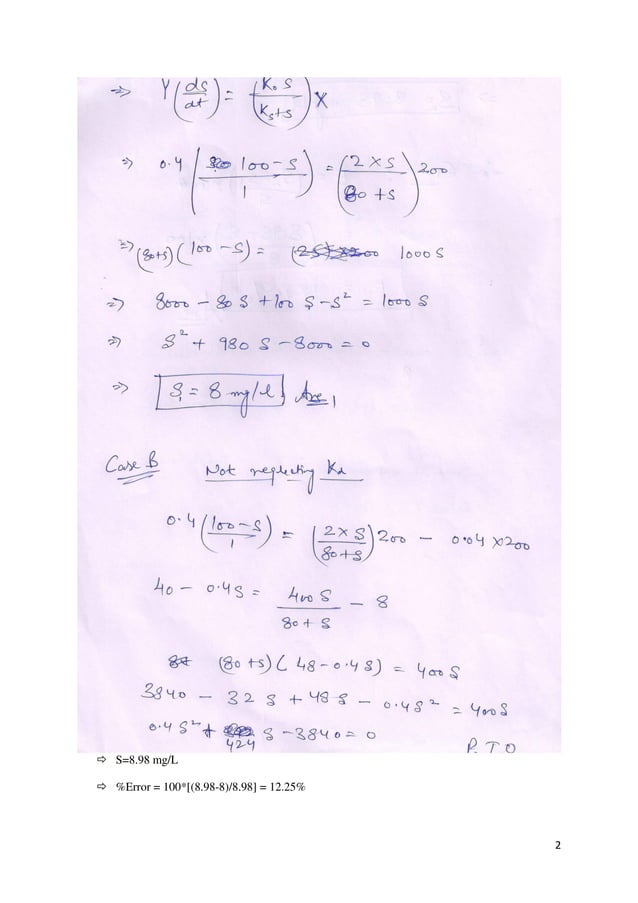 ⇒ Y (ds/dt) = (K₀ S / (Kₛ+s)) X
⇒ 0.4 ((100-S)/1) = ((2×S)/(80+S)) 200
⇒ (80+s)(100-S) = 1000 S
⇒ 8000 - 80 S + 100 S - S² = 1000 S
⇒ S² + 980 S - 8000 = 0
⇒ S₁ = 8 mg/l Ans 1
Case B Not neglecting Kd
0.4 ((100-S)/1) = ((2×S)/(80+S)) 200 - 0.04×200
40 - 0.4S = 400 S/(80+S) - 8
(80+s)(48-0.4S) = 400 S
3840 - 32 S + 48 S - 0.4S² = 400S
0.4 S² + 424 S - 3840 = 0
P.T.O
⇨ S=8.98 mg/L
⇨ %Error = 100*[(8.98-8)/8.98] = 12.25%
2